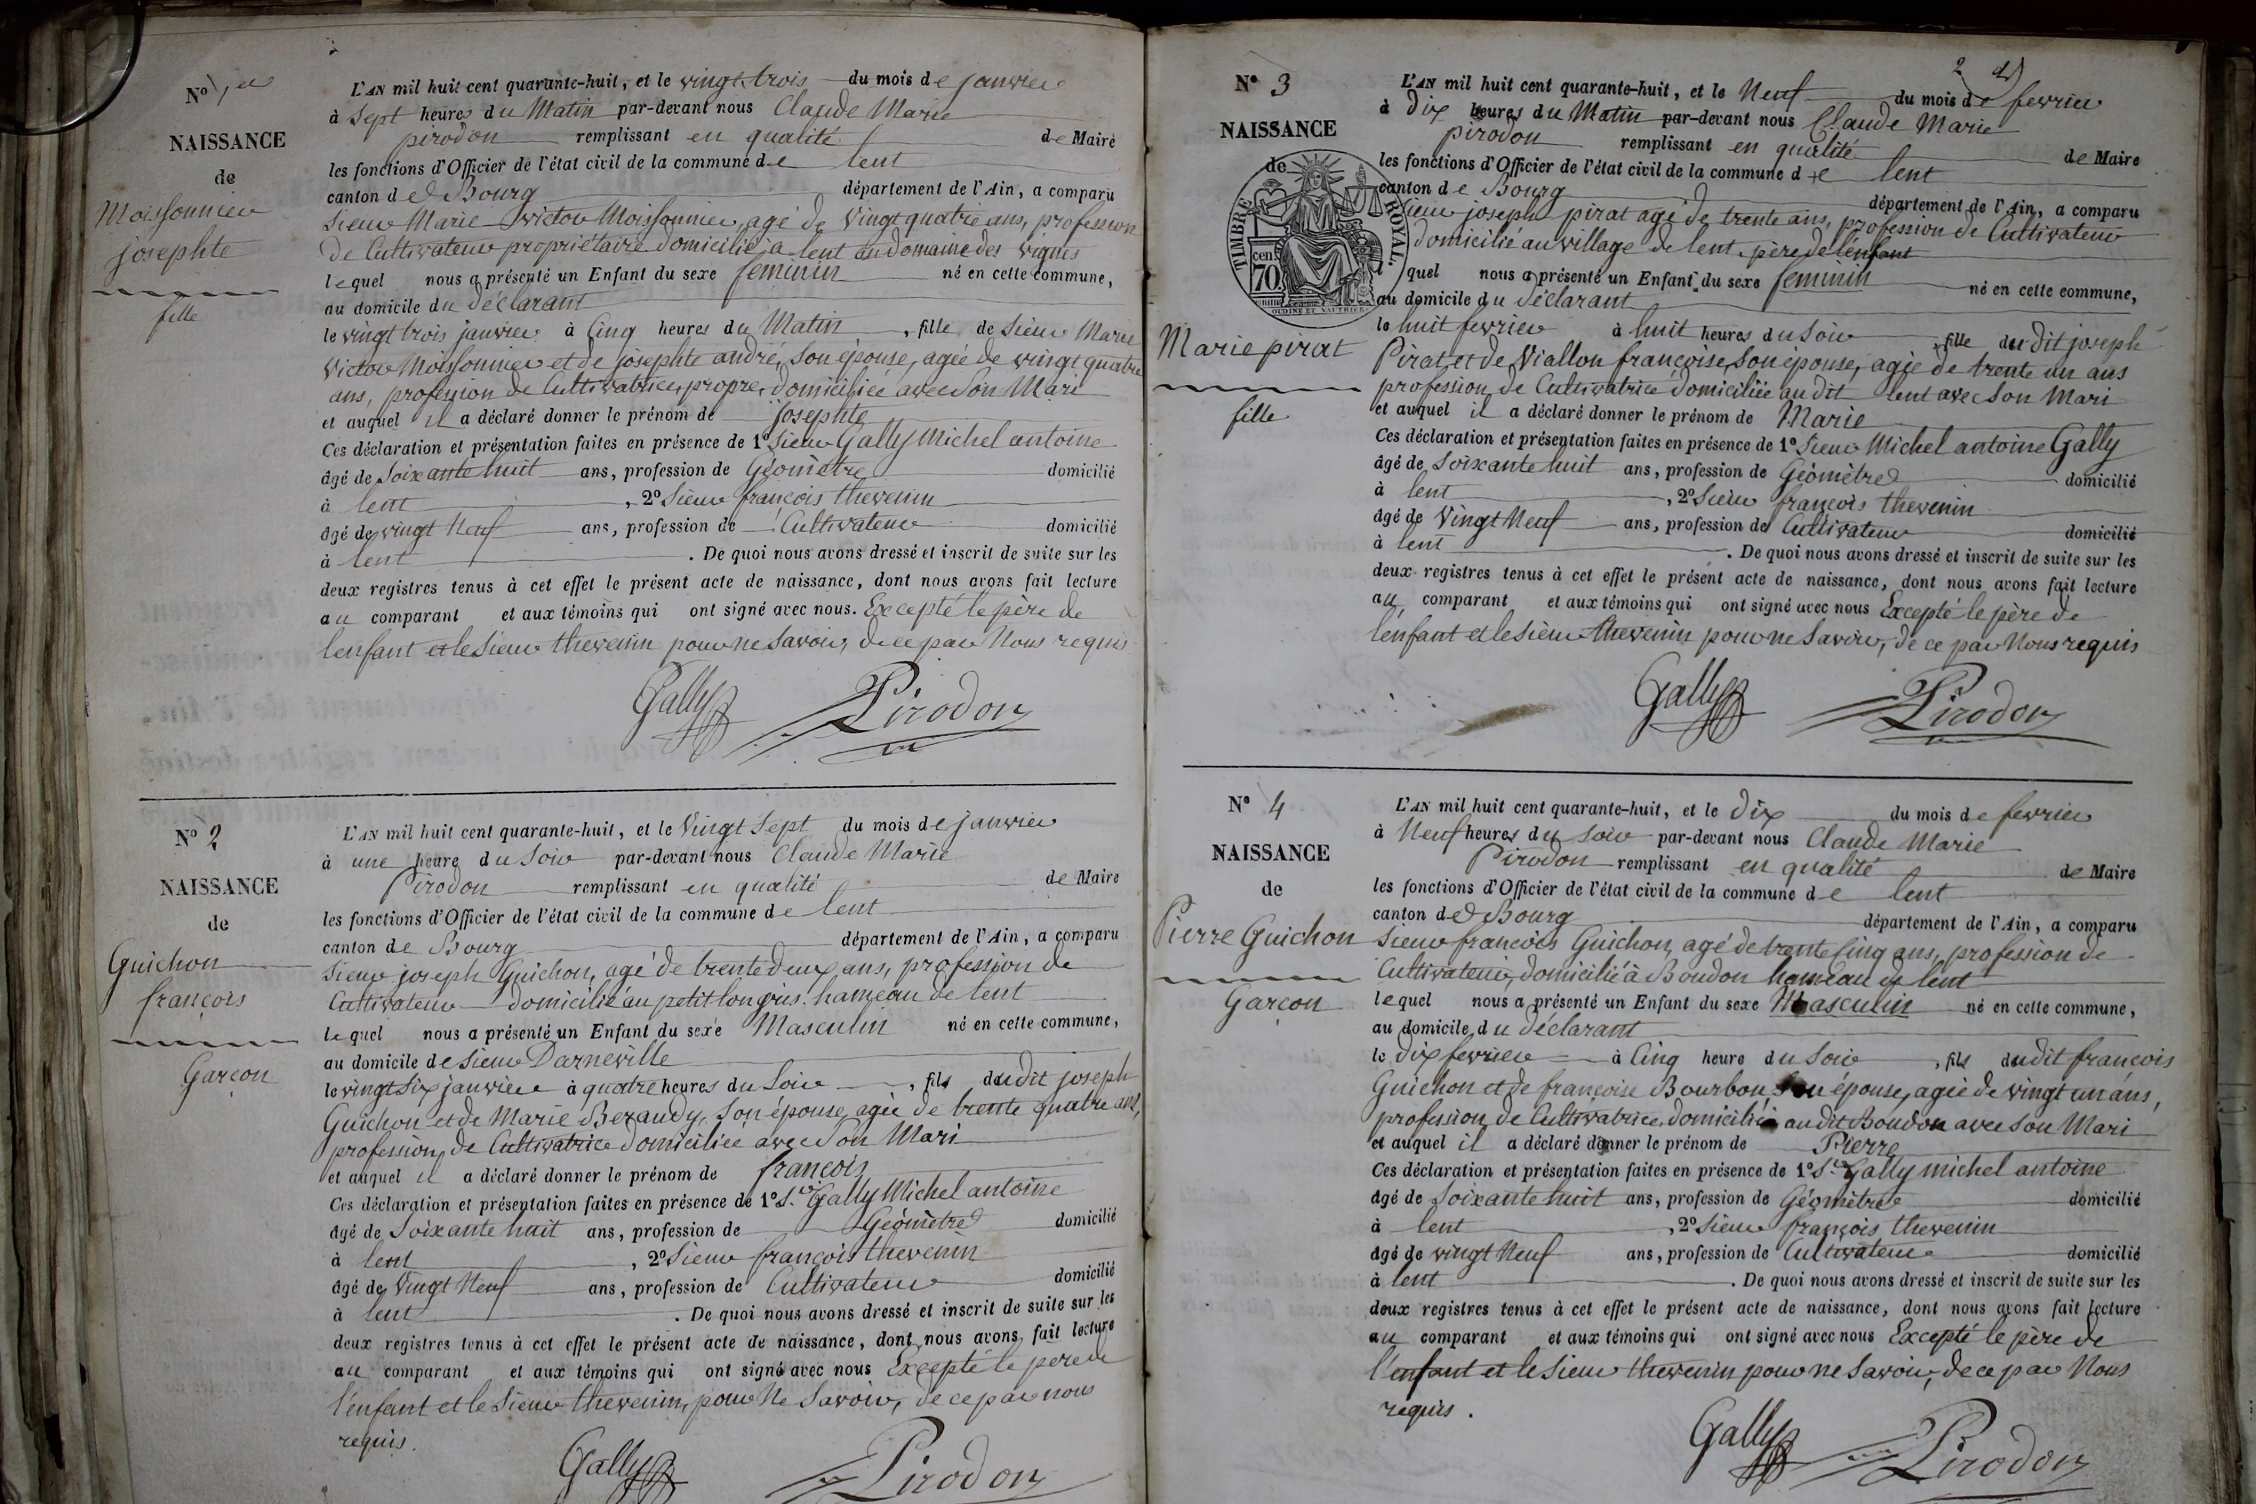 N° 1er
NAISSANCE
de
Moissonnier
josephte
fille
L'AN mil huit cent quarante-huit, et le vingt trois du mois de janvier
à sept heures du Matin par-devant nous Claude Marie
pirodon remplissant en qualité de Maire
les fonctions d'Officier de l'état civil de la commune de lent
canton de Bourg département de l'Ain, a comparu
Sieur Marie Victor Moissonnier, agé de Vingt quatre ans, profession
de Cultivateur propriétaire domicilié à lent au domaine des vignes
lequel nous a présenté un Enfant du sexe féminin né en cette commune,
au domicile du déclarant
le vingt trois janvier à Cinq heures du Matin, fille de Sieur Marie
Victor Moissonnier et de josephte andré, Son épouse, agée de vingt quatre
ans, profession de Cultivatrice, propre, domiciliée avec Son Mari
et auquel il a déclaré donner le prénom de josephte
Ces déclaration et présentation faites en présence de 1° Sieur Gally Michel antoine
âgé de Soixante huit ans, profession de Géomètre domicilié
à lent, 2° Sieur françois thevenin
âgé de vingt Neuf ans, profession de Cultivateur domicilié
à lent. De quoi nous avons dressé et inscrit de suite sur les
deux registres tenus à cet effet le présent acte de naissance, dont nous avons fait lecture
au comparant et aux témoins qui ont signé avec nous. Excepté le père de
l'enfant et le Sieur thevenin pour ne Savoir, de ce par Nous requis
Gally Pirodon
N° 2
NAISSANCE
de
Guichon
françois
Garçon
L'AN mil huit cent quarante-huit, et le Vingt Sept du mois de janvier
à une heure du Soir par-devant nous Claude Marie
Pirodon remplissant en qualité de Maire
les fonctions d'Officier de l'état civil de la commune de lent
canton de Bourg département de l'Ain, a comparu
Sieur joseph Guichon, agé de trente deux ans, profession de
Cultivateur domicilié au petit longris hameau de lent
lequel nous a présenté un Enfant du sexe Masculin né en cette commune,
au domicile de Sieur Darneville
le vingt Six janvier à quatre heures du Soir, fils du dit joseph
Guichon et de Marie Bezaudy, Son épouse, agée de trente quatre ans,
profession de Cultivatrice domiciliée avec Son Mari
et auquel il a déclaré donner le prénom de françois
Ces déclaration et présentation faites en présence de 1° S.r Gally Michel antoine
âgé de Soixante huit ans, profession de Géomètre domicilié
à lent, 2° Sieur françois thevenin
âgé de Vingt Neuf ans, profession de Cultivateur domicilié
à lent. De quoi nous avons dressé et inscrit de suite sur les
deux registres tenus à cet effet le présent acte de naissance, dont nous avons fait lecture
au comparant et aux témoins qui ont signé avec nous Excepté le père de
l'enfant et le Sieur thevenin, pour Ne Savoir, de ce par nous
requis.
Gally Pirodon
N° 3
NAISSANCE
de
TIMBRE ROYAL.
cen. 70.
Marie pirat
fille
L'AN mil huit cent quarante-huit, et le Neuf du mois de fevrier
à dix heures du Matin par-devant nous Claude Marie
pirodon remplissant en qualité de Maire
les fonctions d'Officier de l'état civil de la commune de lent
canton de Bourg département de l'Ain, a comparu
Sieur joseph pirat agé de trente ans, profession de Cultivateur
domicilié au village de lent, père de l'enfant
lequel nous a présenté un Enfant du sexe féminin né en cette commune,
au domicile du déclarant
le huit fevrier à huit heures du Soir, fille du dit joseph
Pirat et de Viallon françoise, Son épouse, agée de trente un ans
profession de Cultivatrice domiciliée au dit lent avec Son Mari
et auquel il a déclaré donner le prénom de Marie
Ces déclaration et présentation faites en présence de 1° Sieur Michel antoine Gally
âgé de Soixante huit ans, profession de Géomètre domicilié
à lent, 2° Sieur françois thevenin
âgé de Vingt Neuf ans, profession de Cultivateur domicilié
à lent. De quoi nous avons dressé et inscrit de suite sur les
deux registres tenus à cet effet le présent acte de naissance, dont nous avons fait lecture
au comparant et aux témoins qui ont signé avec nous Excepté le père de
l'enfant et le Sieur thevenin pour ne Savoir, de ce par Nous requis
Gally Pirodon
N° 4
NAISSANCE
de
Pierre Guichon
Garçon
L'AN mil huit cent quarante-huit, et le dix du mois de fevrier
à Neuf heures du soir par-devant nous Claude Marie
Pirodon remplissant en qualité de Maire
les fonctions d'Officier de l'état civil de la commune de lent
canton de Bourg département de l'Ain, a comparu
Sieur françois Guichon, agé de trente Cinq ans, profession de
Cultivateur, domicilié à Boudon hameau de lent
lequel nous a présenté un Enfant du sexe Masculin né en cette commune,
au domicile du déclarant
le dix fevrier à Cinq heure du Soir, fils du dit françois
Guichon et de françoise Bourbon, Son épouse, agée de vingt un ans,
profession de Cultivatrice, domiciliée au dit Boudon avec Son Mari
et auquel il a déclaré donner le prénom de Pierre
Ces déclaration et présentation faites en présence de 1° S.r Gally michel antoine
âgé de Soixante huit ans, profession de Géomètre domicilié
à lent, 2° Sieur françois thevenin
âgé de vingt Neuf ans, profession de Cultivateur domicilié
à lent. De quoi nous avons dressé et inscrit de suite sur les
deux registres tenus à cet effet le présent acte de naissance, dont nous avons fait lecture
au comparant et aux témoins qui ont signé avec nous Excepté le père de
l'enfant et le Sieur thevenin pour ne Savoir, de ce par Nous
requis.
Gally Pirodon